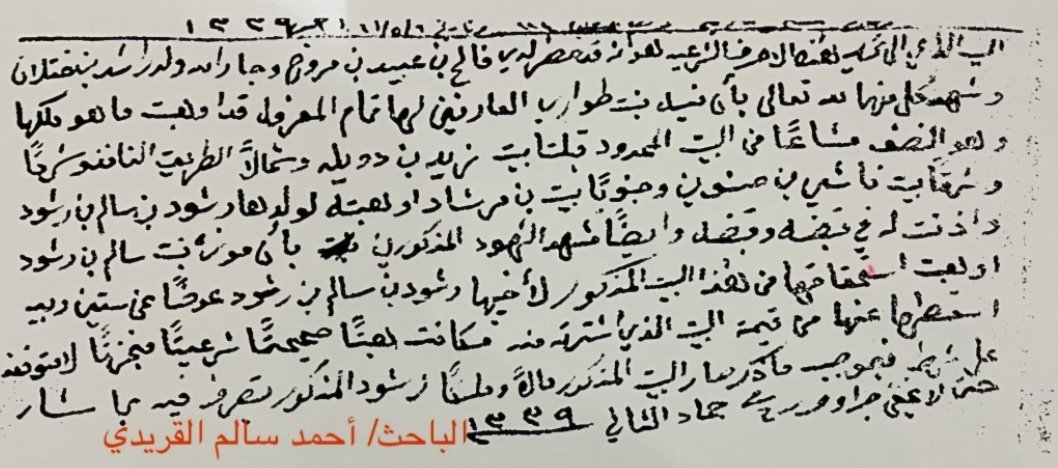 السبب الداعي الى تحرير هذه الاحرف الشرعيه هو انه قد حضر لدي فالح بن عبيد بن مروح وجار الله ولد راشد بن ختلان
وشهد كل منهما لله تعالى بأن بنت طوارب العارفين لها تمام المعرفه قد اوهبت ما هو ملكها
وهو النصف مشاعًا في البيت المحدود قبلتا بيت زيد بن دويله وشمالاً الطريق النافذ وشرقًا
وشرقًا بيت ناشي بن حسون وجنوبًا بيت بن مرشاد اوهبته لولدها رشود بن سالم بن رشود
واذنت له في قبضه وقبضه وايضًا شهد الشهود المذكورين بأن موزة بنت سالم بن رشود
اوهبت استحقاقها من هذا البيت المذكور لأخيها رشود بن سالم بن رشود عوضًا عن ستين ربيه
اسقطها عنها من قيمة البيت الذي اشترته منه فكانت هبتًا صحيحتًا شرعيتًا منجزتًا لا متوقفه
على شرط فبموجب ما ذكر صار البيت المذكور مالاً وملكًا لرشود المذكور يتصرف فيه بما شاء
حتى لا يخفى جرا وحرر في جماد الثاني ١٣٣٩
الباحث/ أحمد سالم القريدي